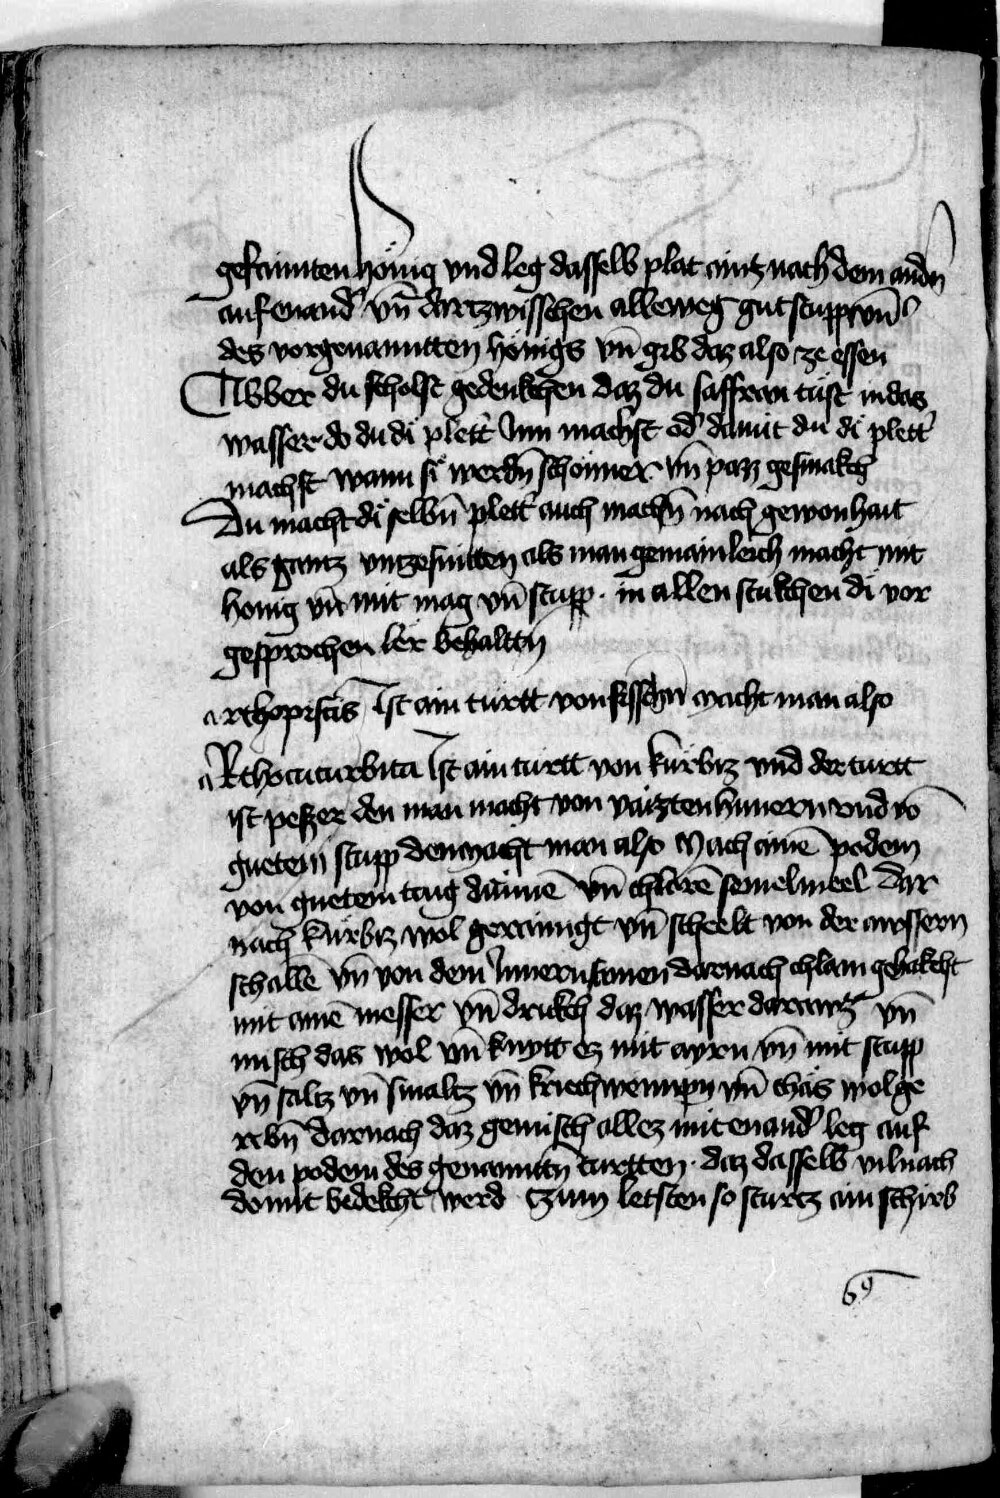 gefaimten hönig vnd leg dasselb plat aintz nach dem andn̄
auf enand' vn̄ dartzwisschen alleweg gut stupp vn̄
des vorgenanntten hönigs vn̄ gib daz also ze essen
Aber du scholst gedenkchen daz du saffran tüst in das
wasser do du di plett' Inn machst od' damit du di plett'
machst wann si werdn̄ schönner vn̄ paz gesmakch
Du macht di selbn̄ plett' auch machn̄ nach gewonhait
als gantz vnzesnitten als man gemainleich macht mit
honig vn̄ mit mag vn̄ stupp . in allen stukchen di vor
gesprochen ler behalttn̄
arthopiscis Ist ain türtt von fisschn̄ macht man also
aRthocucurbita Ist ain türtt von kürbiz vnd der türtt
ist pesser den man macht von vaizten hunern vnd vō
guetem stupp den macht man also Mach ainē podem
von guetem taig dünnē vn̄ chlarē semelmeel Dar
nach kürbiz wol gerainigt vn̄ scheelt von der aussern
schallē vn̄ von dem Innern kornen darnach chlain gehakcht
mit ainē messer vn̄ drukch daz wasser darausz vn̄
misch das wol vn̄ knytt ez mit ayrn vn̄ mit stupp
vn̄ saltz vn̄ smaltz vn̄ kriechweinpn vn̄ chäs wol ge
rebn̄ Darnach daz gemisch allez mit enand' leg auf
den podem des genanntn̄ turtten . daz dasselb vilnach
domit bedekcht werd Czum letsten so sturtz ain schirb
69